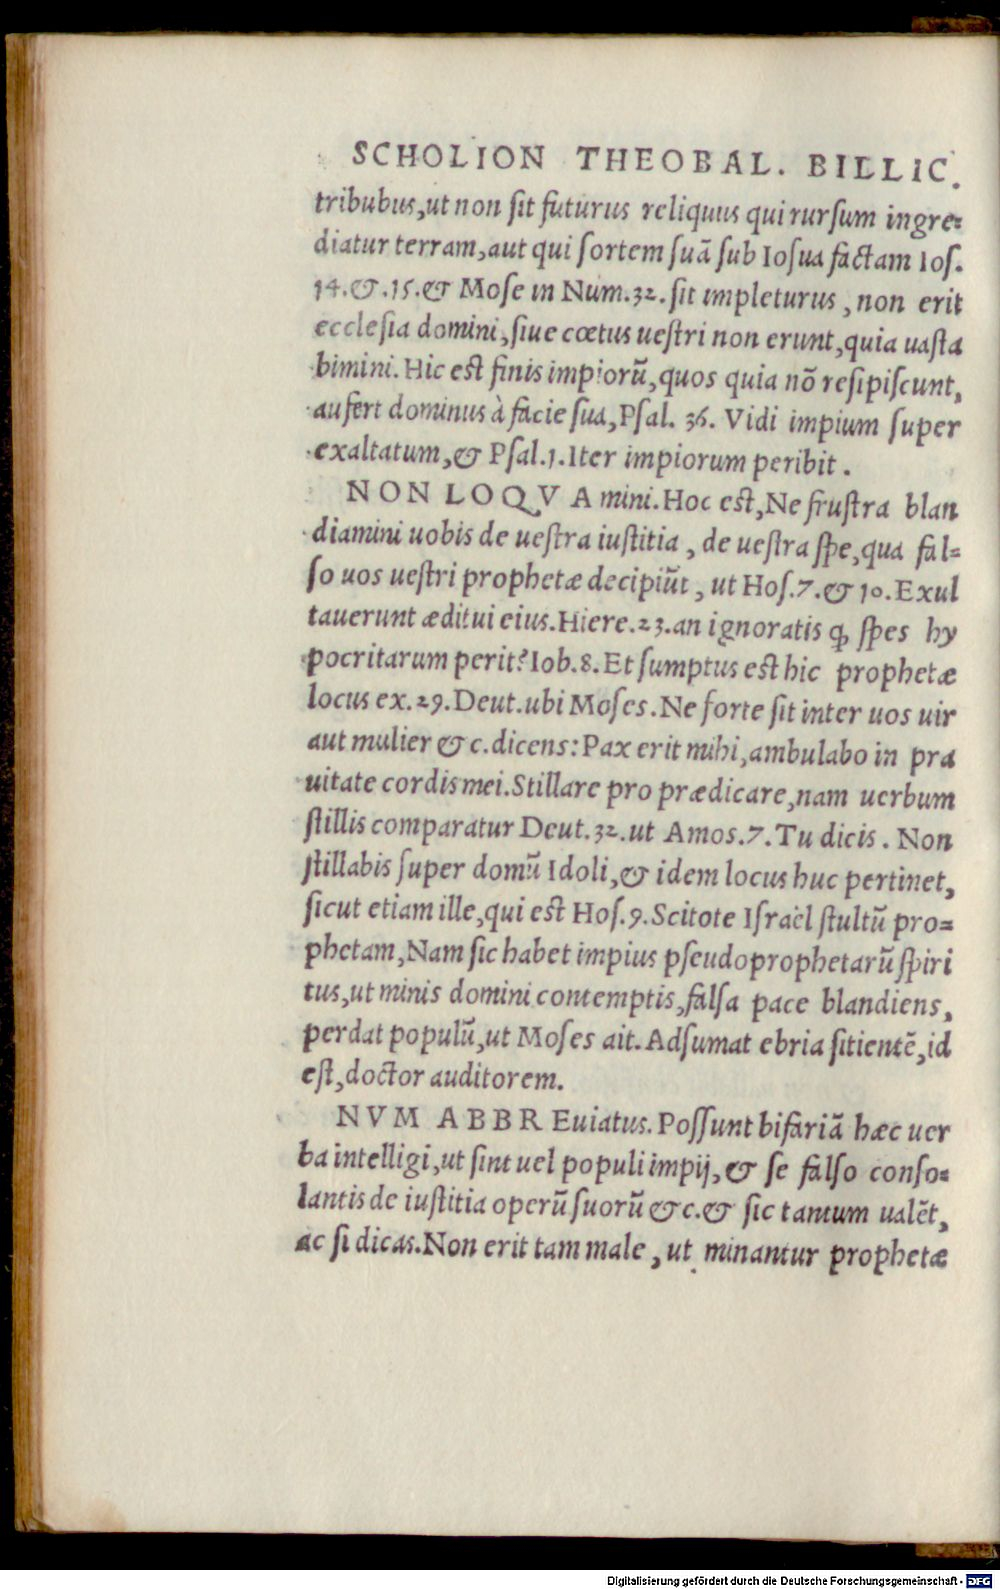 SCHOLION THEOBAL. BILLIC.
tribubus,ut non ſit futurus reliquus qui rurſum ingre=
diatur terram,aut qui ſortem ſuã ſub Ioſua factam Ioſ.
14.&.15.& Moſe in Num.32.ſit impleturus, non erit
eccleſia domini,ſiue cœtus ueſtri non erunt,quia uaſta
bimini. Hic eſt finis impiorũ,quos quia nõ reſipiſcunt,
aufert dominus à facie ſua,Pſal. 36. Vidi impium ſuper
exaltatum,& Pſal.1.Iter impiorum peribit.
NON LOQVA mini. Hoc eſt,Ne fruſtra blan
diamini uobis de ueſtra iuſtitia, de ueſtra ſpe,qua fal=
ſo uos ueſtri prophetæ decipiũt, ut Hoſ.7.&10.Exul
tauerunt æditui eius.Hiere.23.an ignoratis ꝙ ſpes hy
pocritarum perit?Iob.8.Et ſumptus eſt hic prophetæ
locus ex.29.Deut.ubi Moſes.Ne forte ſit inter uos uir
aut mulier &c.dicens:Pax erit mihi,ambulabo in pra
uitate cordis mei.Stillare pro prædicare,nam uerbum
ſtillis comparatur Deut.32.ut Amos.7.Tu dicis. Non
ſtillabis ſuper domũ Idoli,& idem locus huc pertinet,
ſicut etiam ille,qui eſt Hoſ.9.Scitote Iſraël ſtultũ pro=
phetam,Nam ſic habet impius pſeudoprophetarũ ſpiri
tus,ut minis domini contemptis,falſa pace blandiens,
perdat populũ,ut Moſes ait.Adſumat ebria ſitientẽ,id
eſt,doctor auditorem.
NVM ABBREuiatus. Poſſunt bifariã hæc uer
ba intelligi,ut ſint uel populi impij,& ſe falſo conſo=
lantis de iuſtitia operũ ſuorũ &c.& ſic tantum ualẽt,
ac ſi dicas.Non erit tam male, ut minantur prophetæ
Digitalisierung gefördert durch die Deutsche Forschungsgemeinschaft - DFG